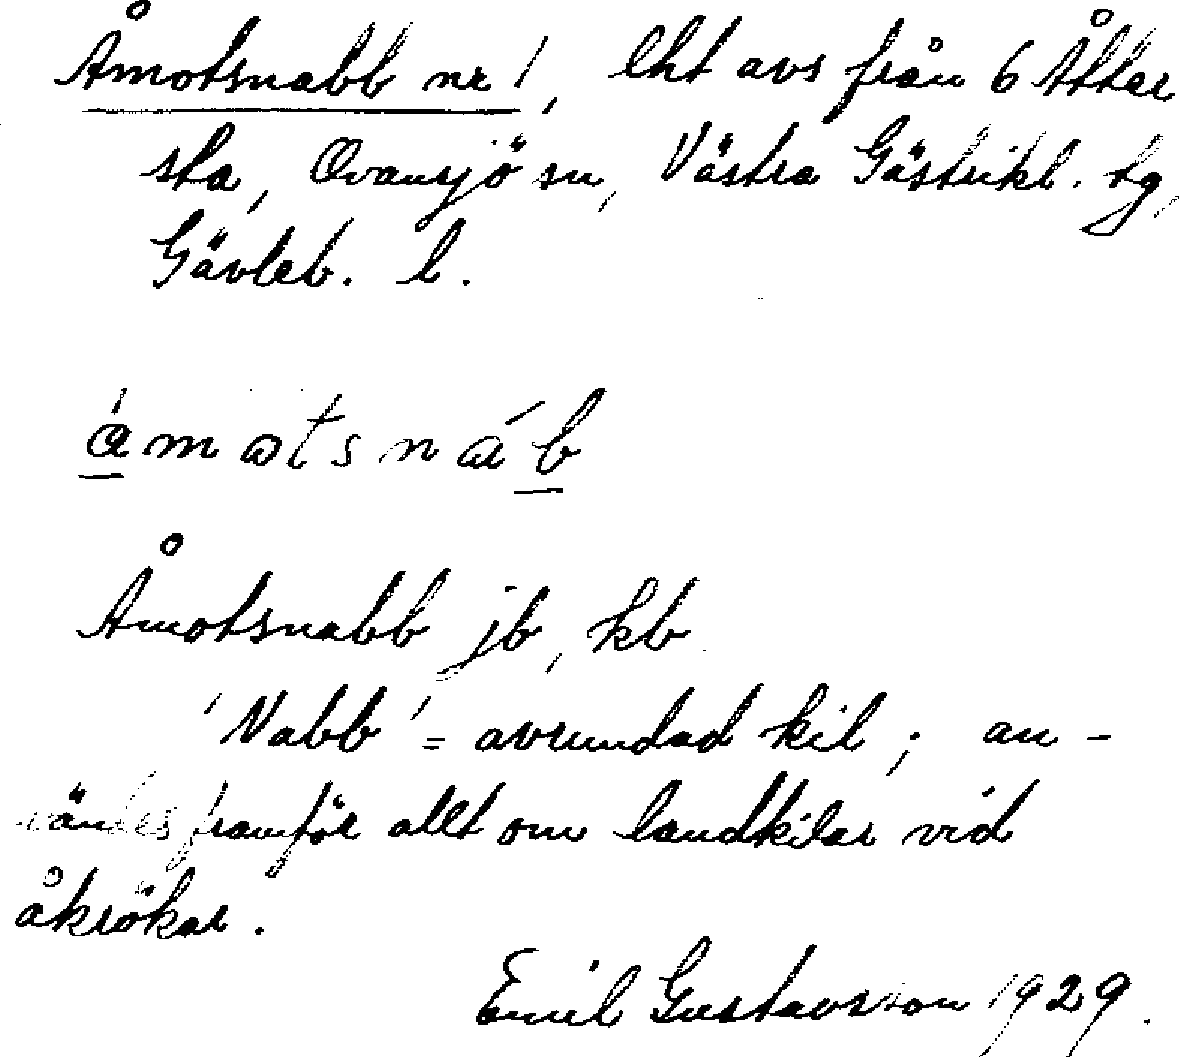 Åmotsnabb nr 1, lht avs från 6 Åtter
sta, Ovansjö sn, Västra Gästrikl. tg,
Gävleb. l.
åmωtsnáb
Åmotsnabb jb, kb
'Nabb' = avrundad kil; an-
vändes framför allt om landkilar vid
åkrökar.
Emil Gustavsson 1929.